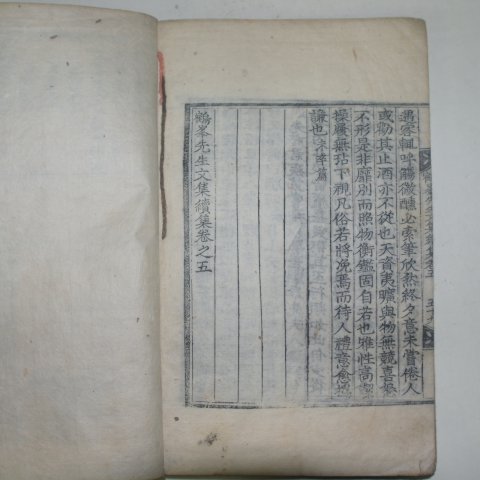 遇家輒呼觴微醺必索筆欣然終夕意未嘗倦人
或勸其止酒亦不從也天資夷曠與物無競喜慍
不形是非靡別而照物衡鑑固自若也雅性高潔
操履無玷下視凡俗若將浼焉而待人體意愈
謙也 末卒篇
鶴峯先生文集續集卷之五